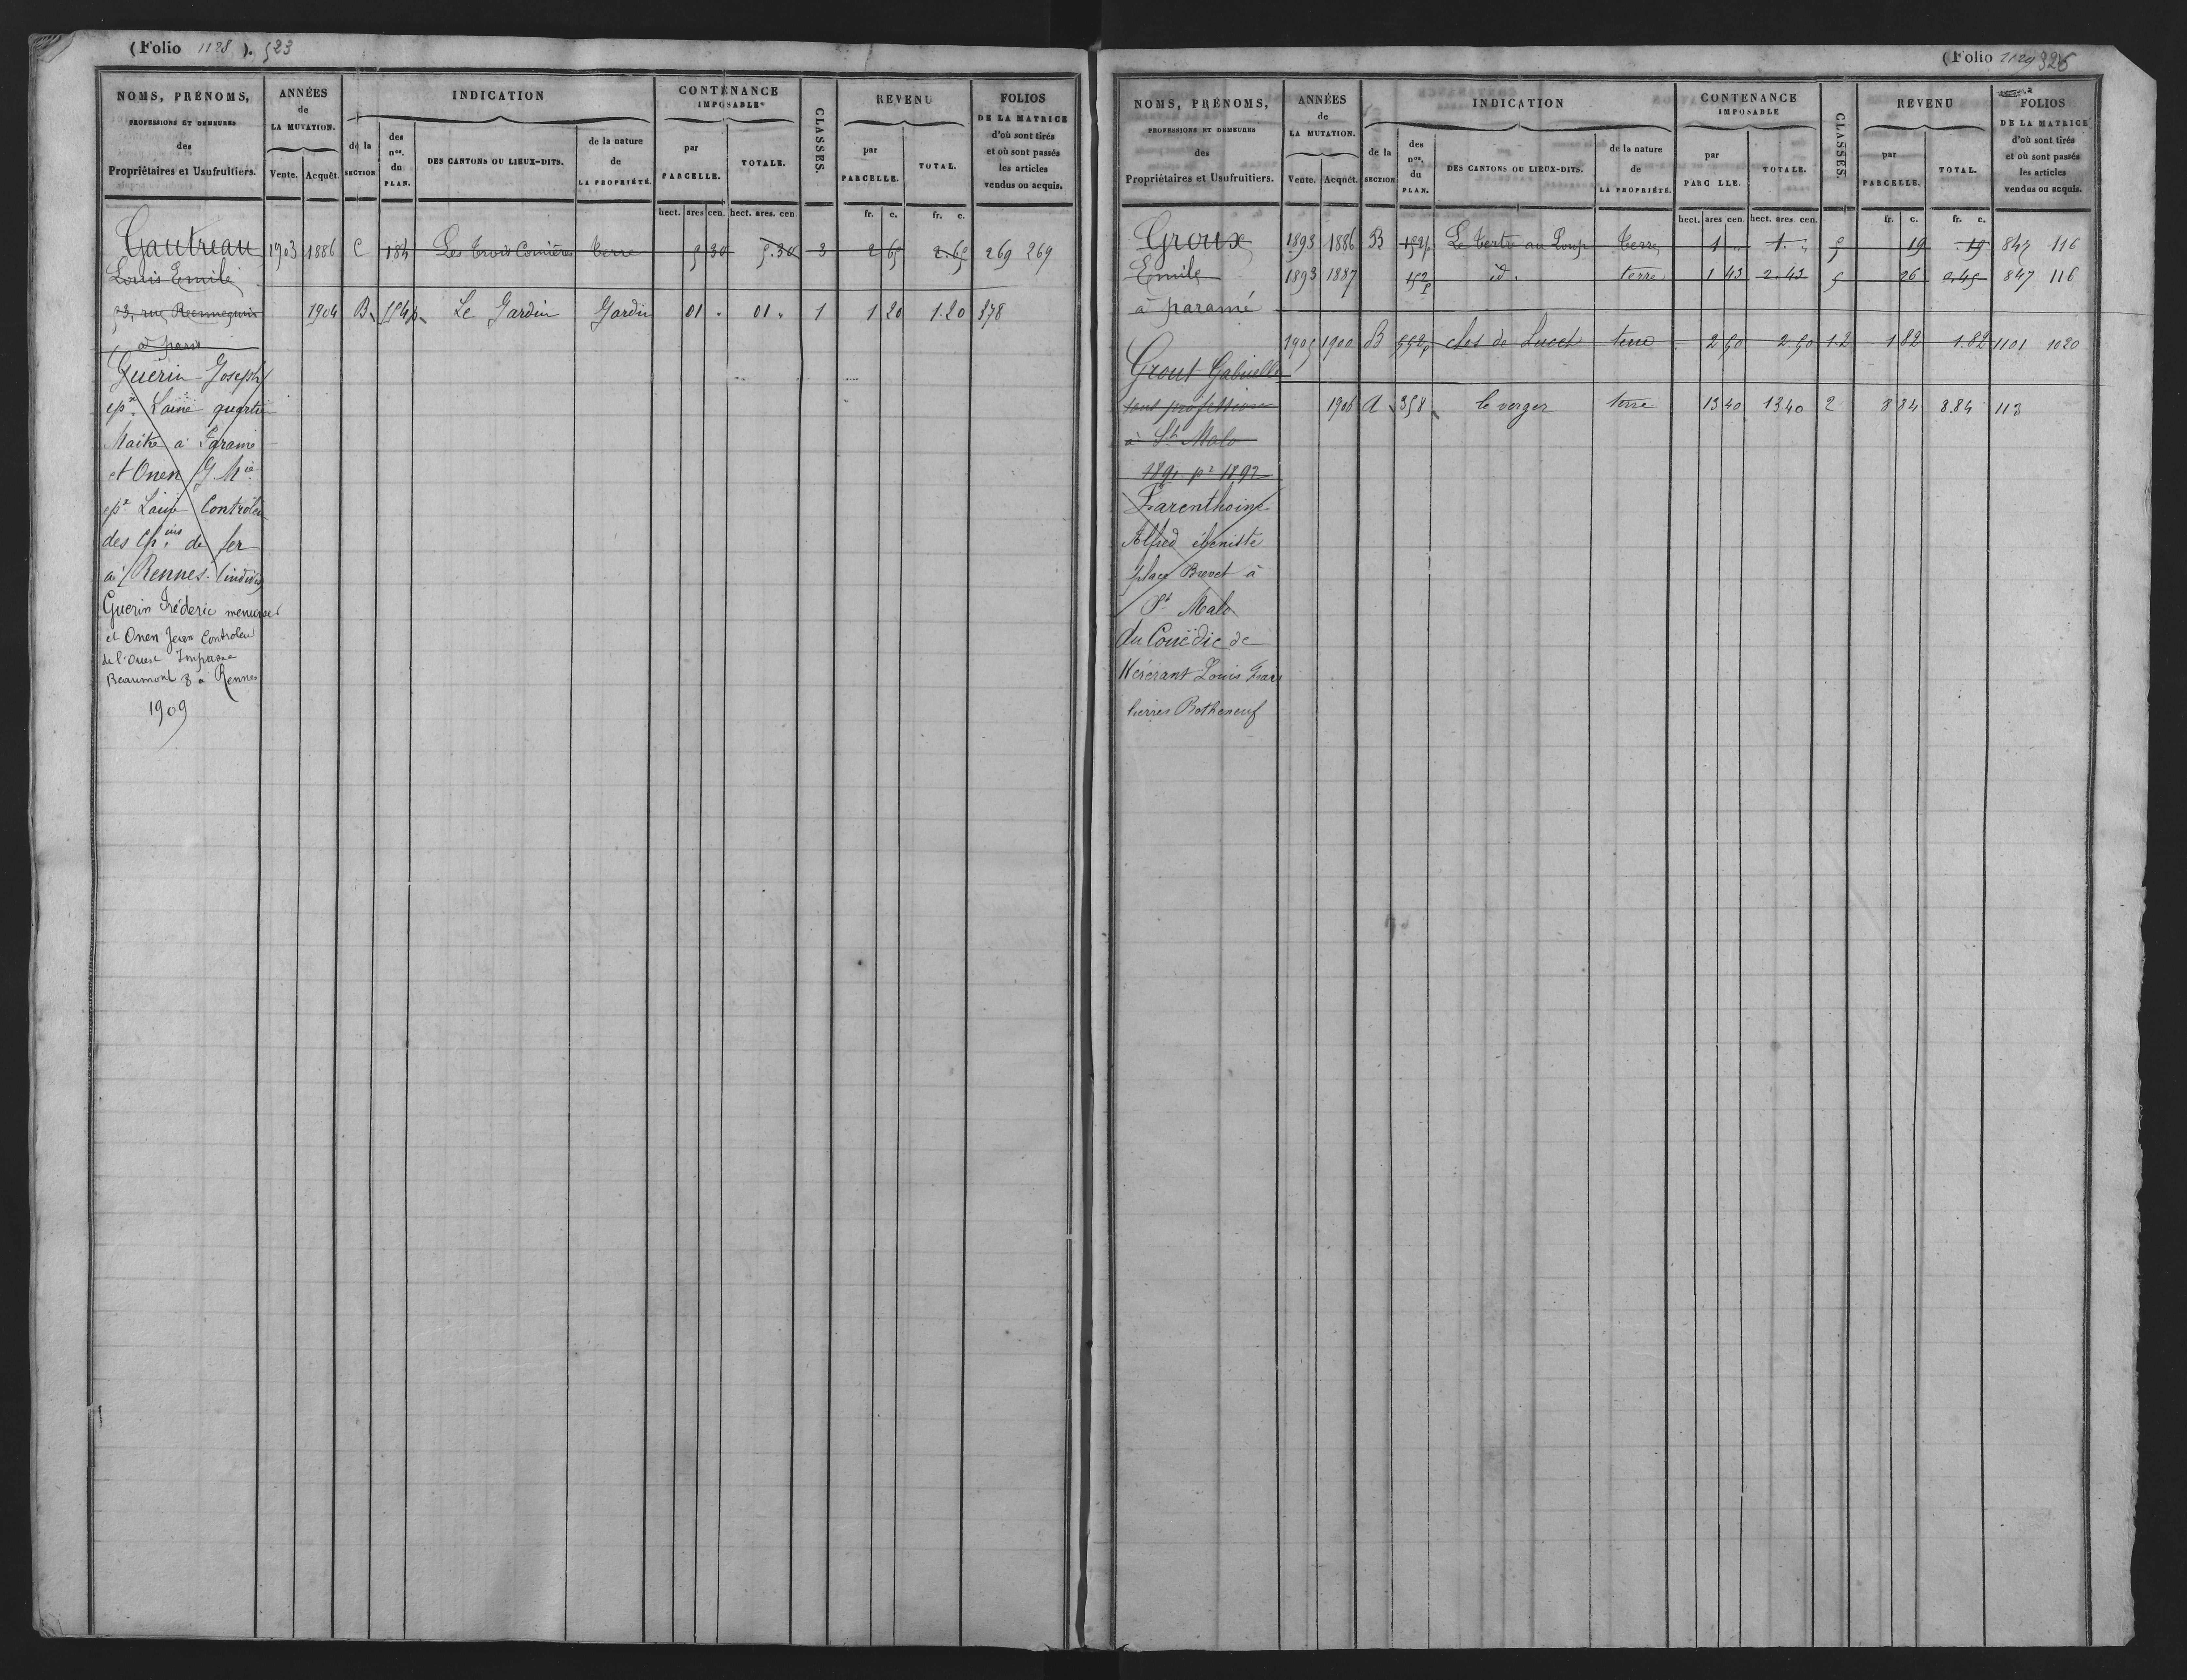 (Folio 1128). 523
NOMS, PRÉNOMS,
PROFESSIONS ET DEMEURES
des
Propriétaires et Usufruitiers.
ANNÉES
de
LA MUTATION.
Vente. Acquêt.
INDICATION
de la
SECTION
des
nos.
du
PLAN.
DES CANTONS OU LIEUX-DITS.
de la nature
de
LA PROPRIÉTÉ.
CONTENANCE
IMPOSABLE
par
PARCELLE.
TOTALE.
CLASSES.
REVENU
par
PARCELLE.
TOTAL.
FOLIOS
DE LA MATRICE
d'où sont tirés
et où sont passés
les articles
vendus ou acquis.
hect. ares cen. hect. ares. cen. fr. c. fr. c.
Gautreau 1903 1886 C 184 Les Trois Cornières terre 5 30 5.30 3 2 65 2.65 269 269
Louis Emile
rue
à paris
1904 B 554p Le Jardin Jardin 01 " 01 " 1 1 20 1.20 378
Guérin Joseph
epx. Lainé quartier
Maitre à Paramé
et Onen J. Mie
epx Lainé Controleur
des Chins de fer
à Rennes. (indivis)
Guerin Fréderic menuisier
et Onen Jean Controleur
de l'Ouest Impasse
Beaumont 8 à Rennes
1909
(Folio 1129
NOMS, PRÉNOMS,
PROFESSIONS ET DEMEURES
des
Propriétaires et Usufruitiers.
ANNÉES
de
LA MUTATION.
Vente. Acquêt.
INDICATION
de la
SECTION
des
nos.
du
PLAN.
DES CANTONS OU LIEUX-DITS.
de la nature
de
LA PROPRIÉTÉ.
CONTENANCE
IMPOSABLE
par
PARC LLE.
TOTALE.
CLASSES.
REVENU
par
PARCELLE.
TOTAL.
FOLIOS
DE LA MATRICE
d'où sont tirés
et où sont passés
les articles
vendus ou acquis.
hect. ares cen. hect. ares. cen. fr. c. fr. c.
Groux 1893 1886 B 152p Le Tertre au Loup Terre 1 " 1. " 5 19 19 847 116
Emile 1893 1887 152p id. terre 1 43 2.43 5 26 0.45 847 116
à paramé
1905 1900 B 552p clos de Lucet terre 2 50 2.50 1.2 1 82 1.82 1101 1020
Grout Gabrielle
sans profession 1906 A 358 le verger terre 13 40 13.40 2 8 84 8.84 113
à St Malo
1891 pr 1892
Parenthoine
Alfred ébeniste
place Brevet à
St Malo
du Couëdic de
Kérérant Louis
Rotheneuf